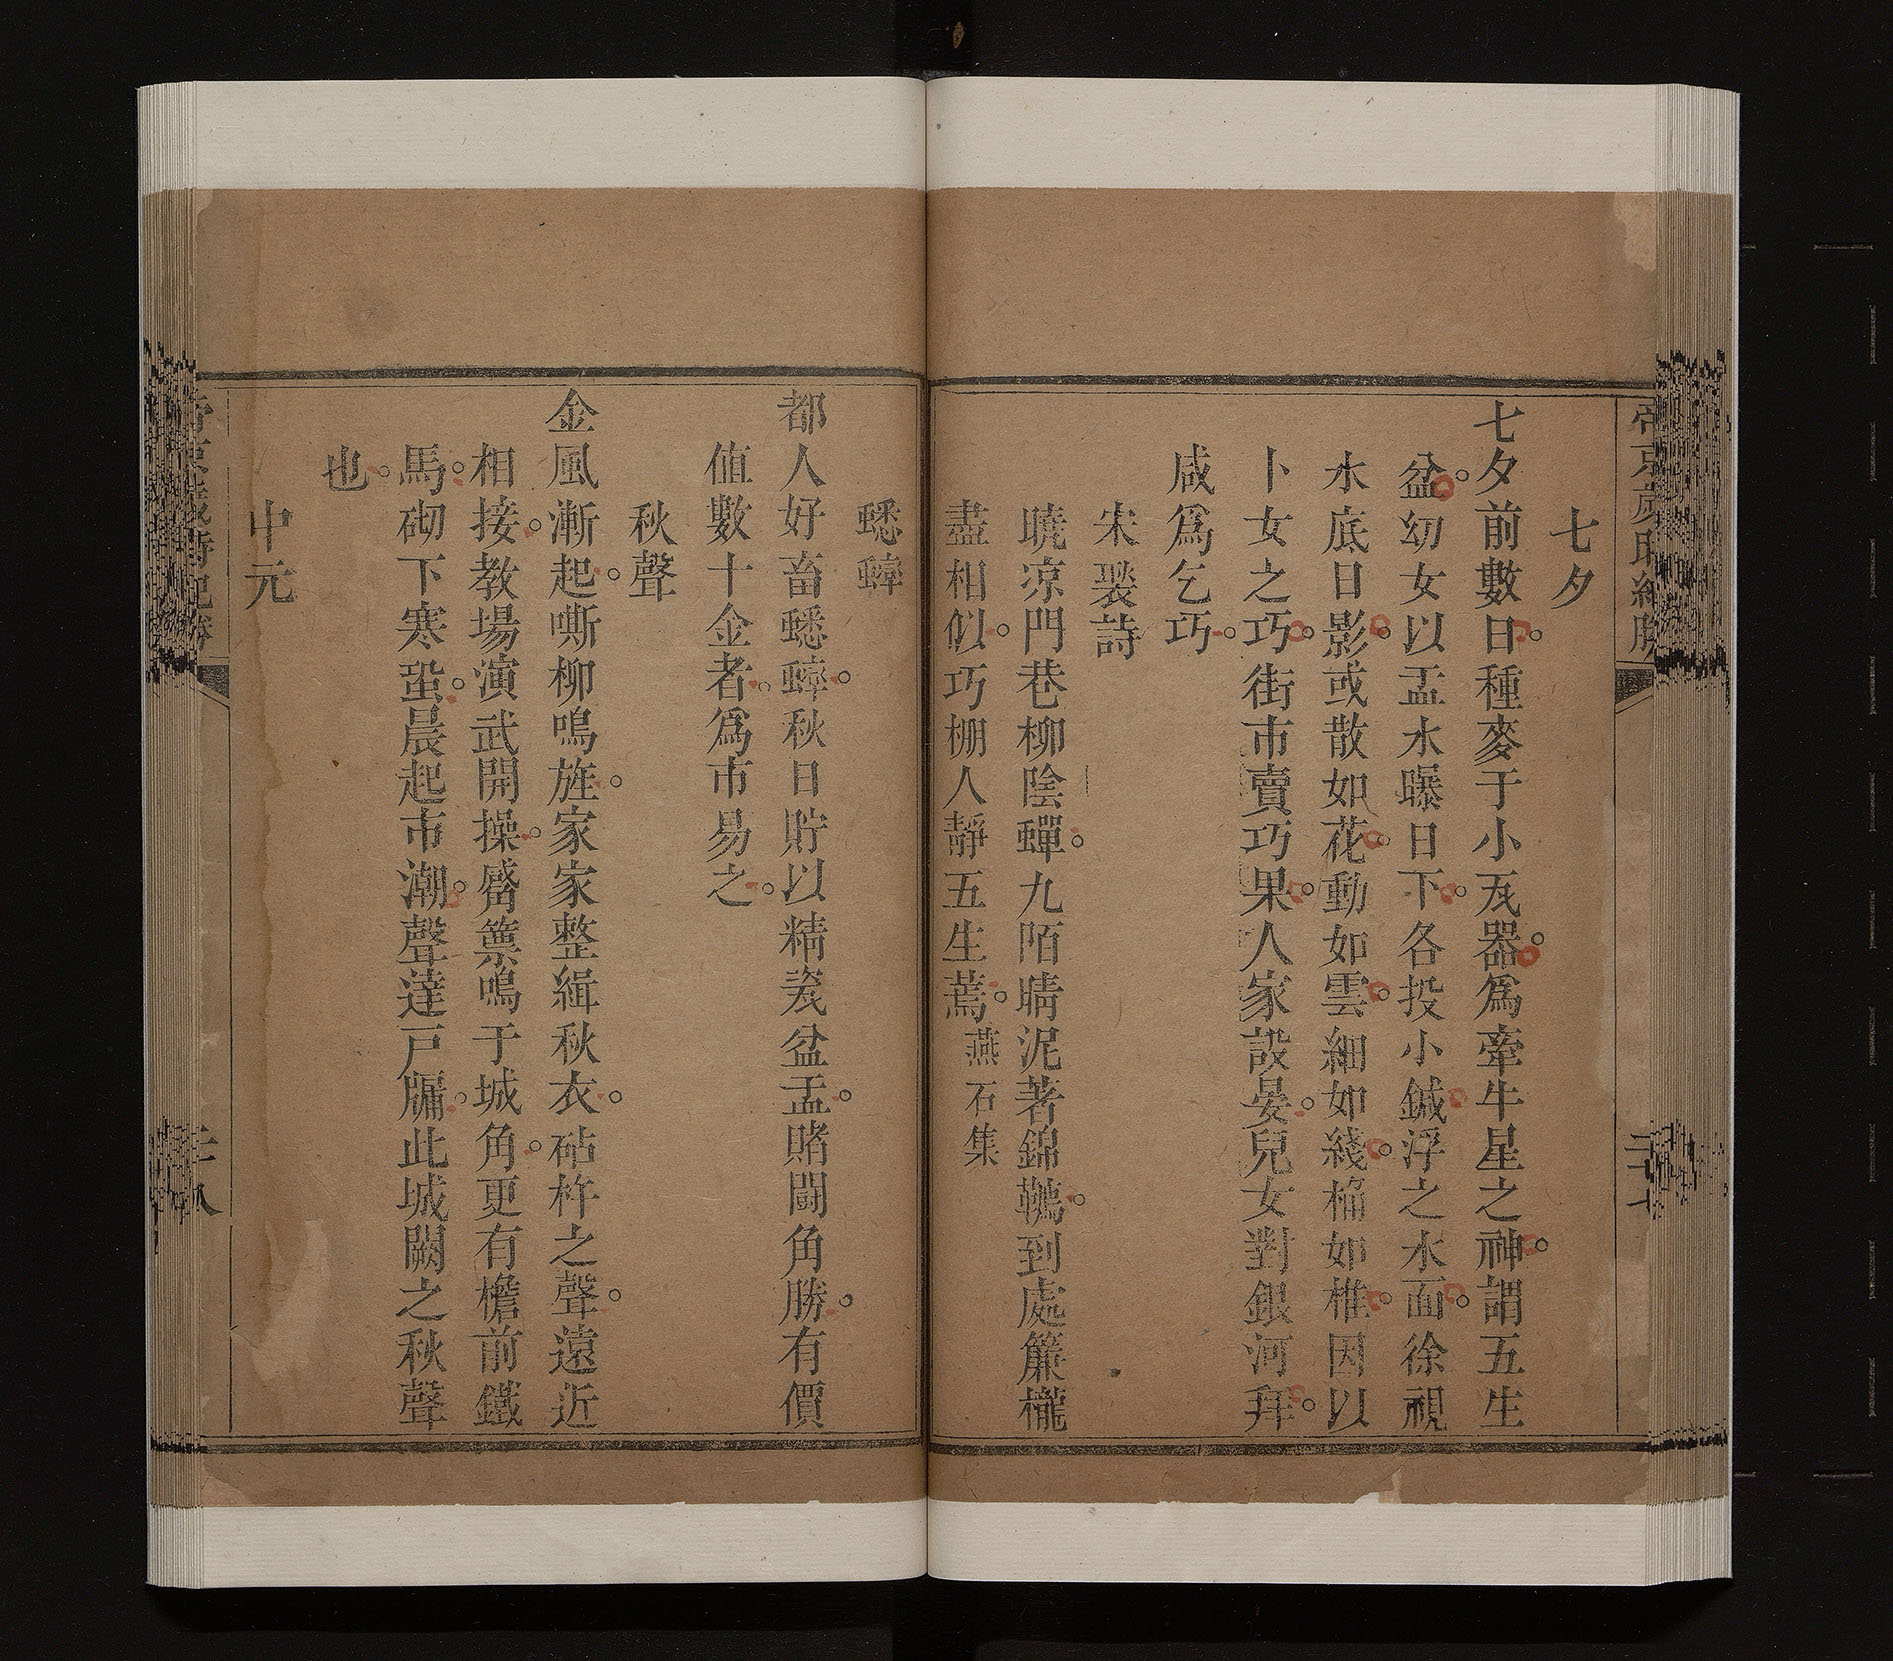 七夕
七夕前數日種麥于小瓦器爲牽牛星之神謂五生
盆幼女以盂水曝日下各投小鍼浮之水面徐視
水底日影或散如花動如雲細如綫粗如椎因以
卜女之巧街市賣巧果人家設宴兒女對銀河拜
咸爲乞巧
宋褧詩
曉凉門巷柳陰蟬九陌晴泥著錦韉到處簾櫳
盡相似巧棚人靜五生蔫燕石集
蟋蟀
都人好畜蟋蟀秋日貯以精瓷盆盂賭鬪角勝有價
值數十金者爲市易之
秋聲
金風漸起嘶柳鳴旌家家整緝秋衣砧杵之聲遠近
相接教場演武開操觱篥鳴于城角更有檐前鐵
馬砌下寒蛩晨起市潮聲達戸牖此城闕之秋聲
也
中元